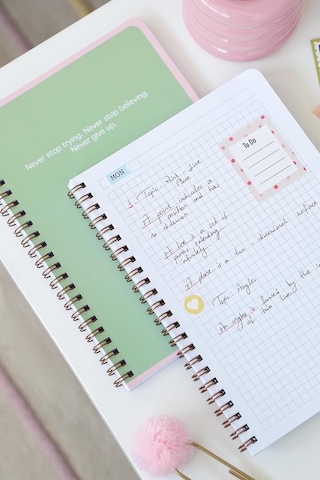 Never stop trying. Never stop believing.
Never give up.
MON
To Do
1. Topic
Plane
A point indicates a
position and has
no dimension
A line is a set of
points extending
infinitely
A plane is a two dimensional surface
Topic Angles
An angle is formed by the
of two lines